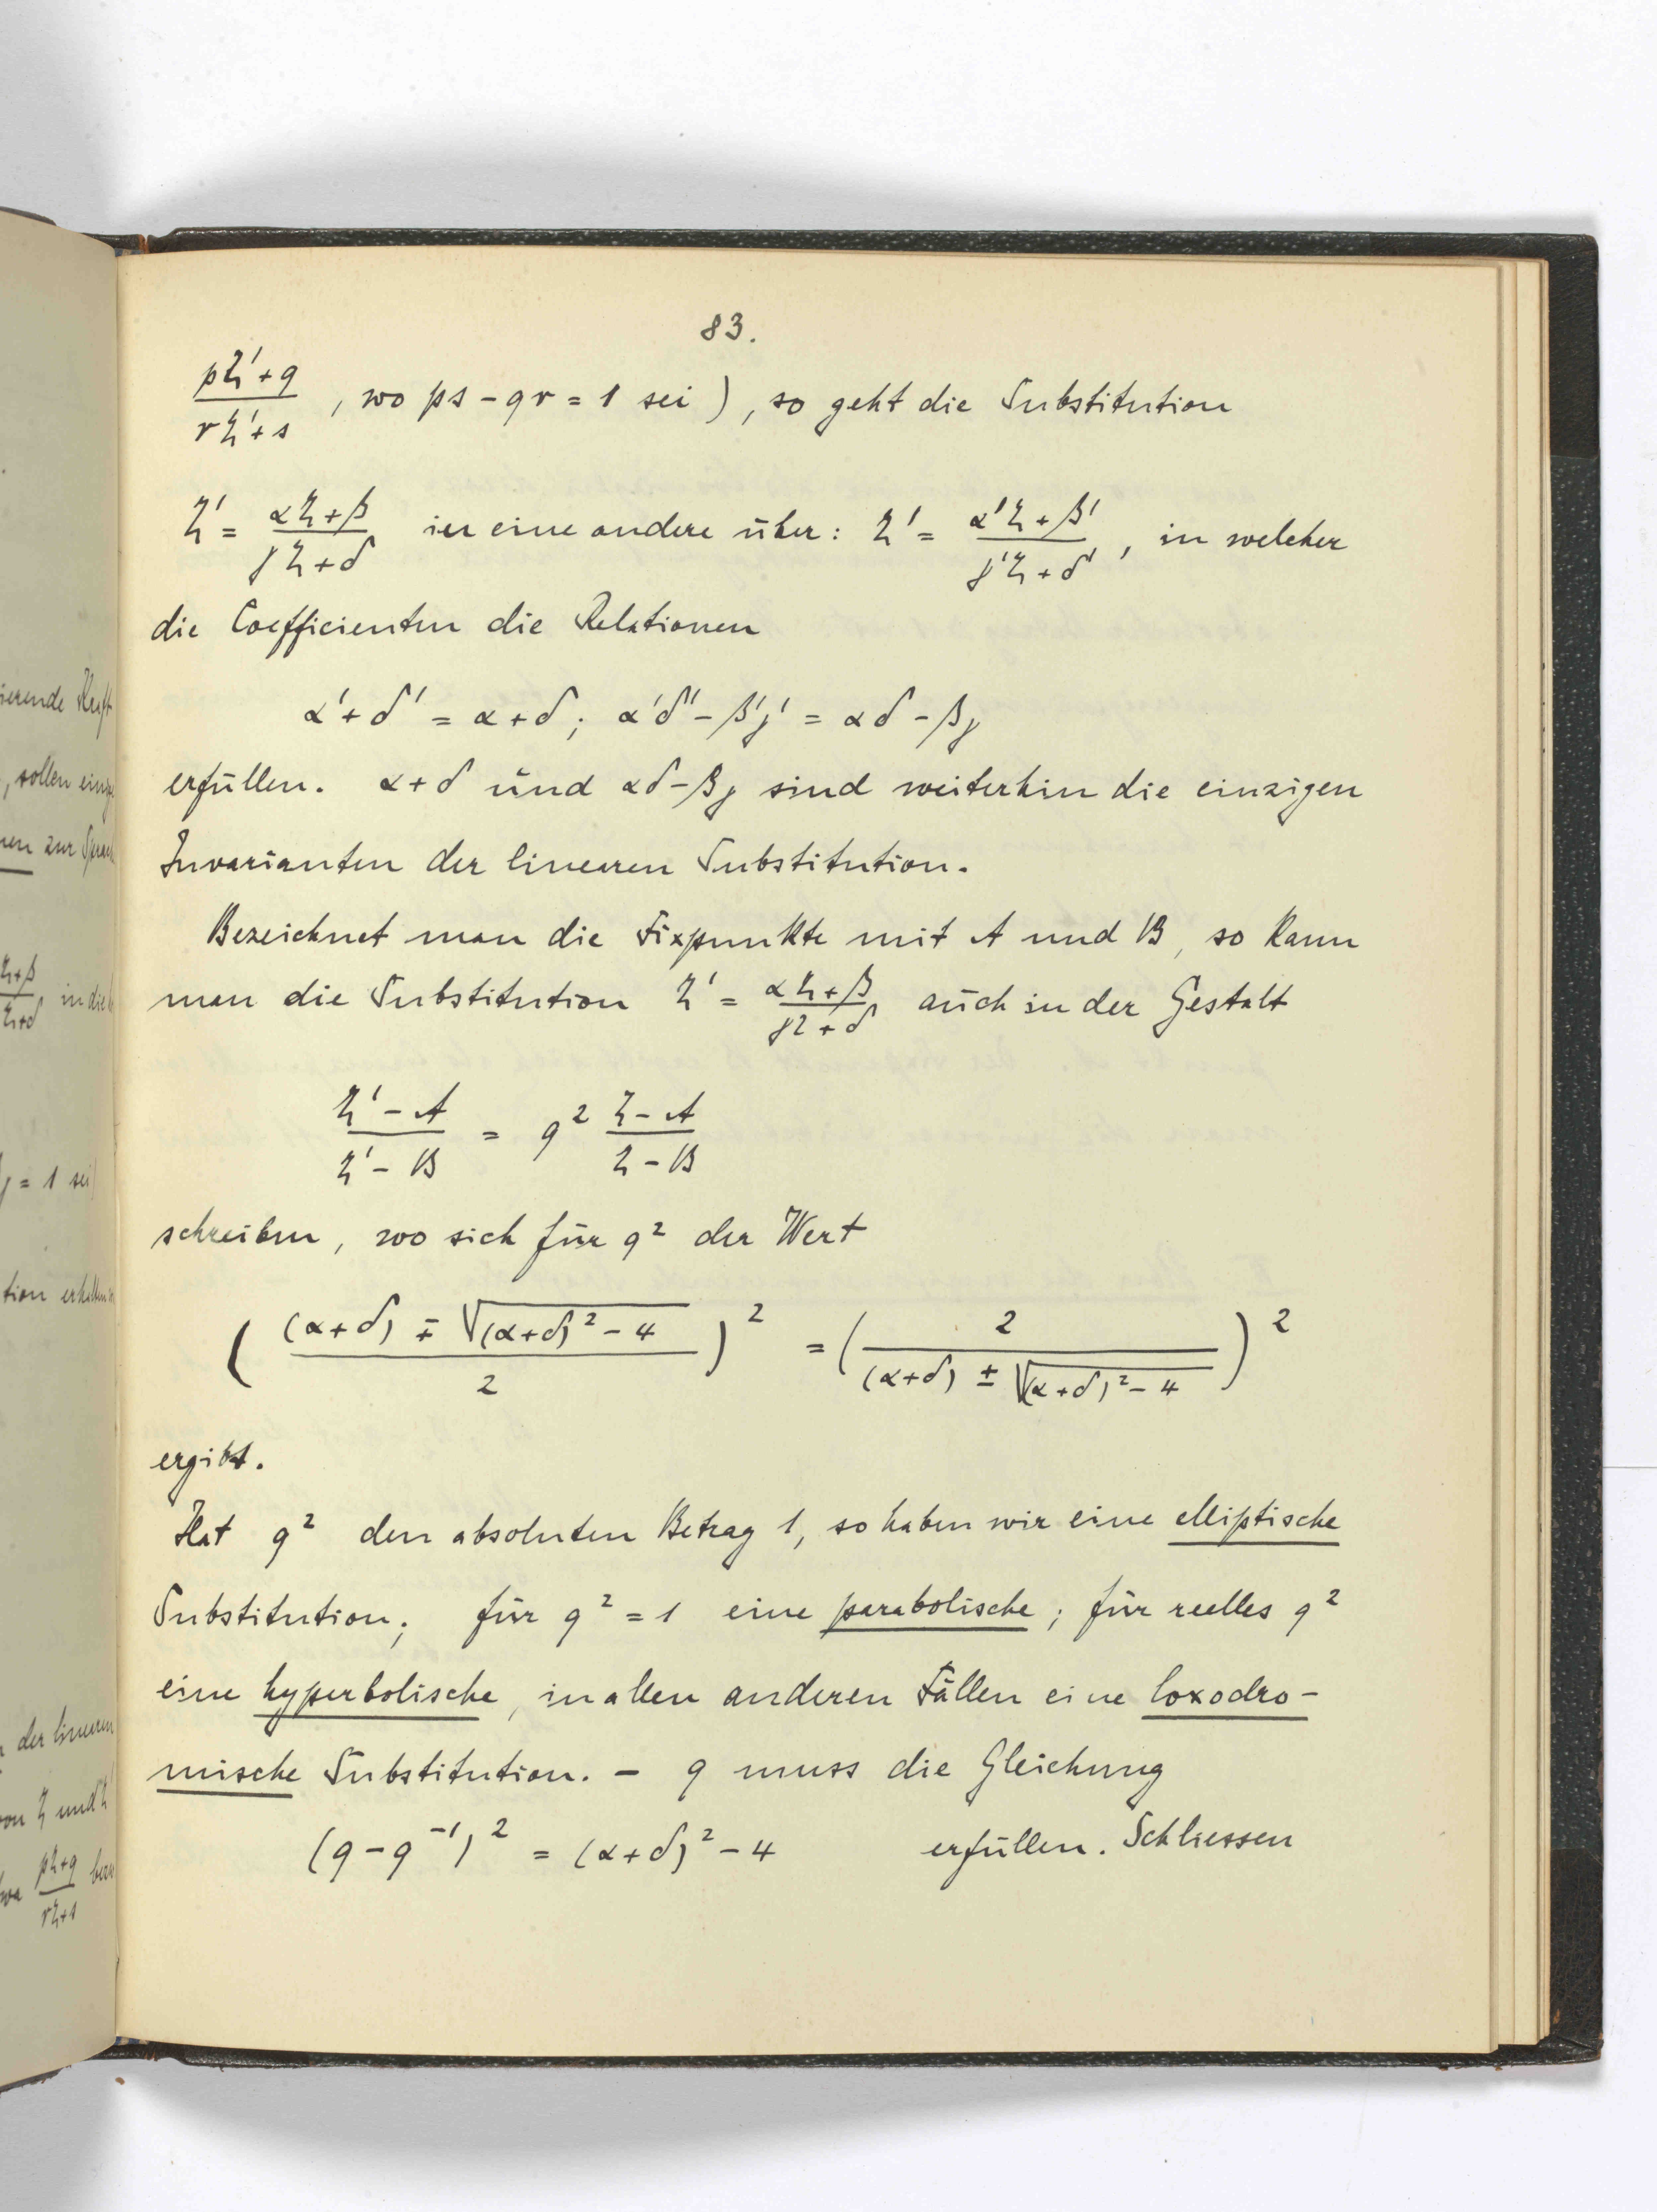 83.
(pζ'+q)/(rζ'+s), wo ps-qr=1 sei), so geht die Substitution
ζ' = (αζ+β)/(γζ+δ) in eine andere über: ζ' = (α'ζ+β')/(γ'ζ+δ'), in welcher
die Coefficienten die Relationen
α'+δ' = α+δ; α'δ'-β'γ' = αδ-βγ
erfüllen. α+δ und αδ-βγ sind weiterhin die einzigen
Invarianten der linearen Substitution.
Bezeichnet man die Fixpunkte mit A und B, so kann
man die Substitution ζ' = (αζ+β)/(γζ+δ) auch in der Gestalt
(ζ'-A)/(ζ'-B) = q² (ζ-A)/(ζ-B)
schreiben, wo sich für q² der Wert
(((α+δ) ∓ √((α+δ)²-4))/2)² = (2/((α+δ) ± √((α+δ)²-4)))²
ergibt.
Hat q² den absoluten Betrag 1, so haben wir eine elliptische
Substitution; für q²=1 eine parabolische; für reelles q²
eine hyperbolische, in allen anderen Fällen eine loxodro-
mische Substitution. - q muss die Gleichung
(q-q⁻¹)² = (α+δ)²-4 erfüllen. Schliessen